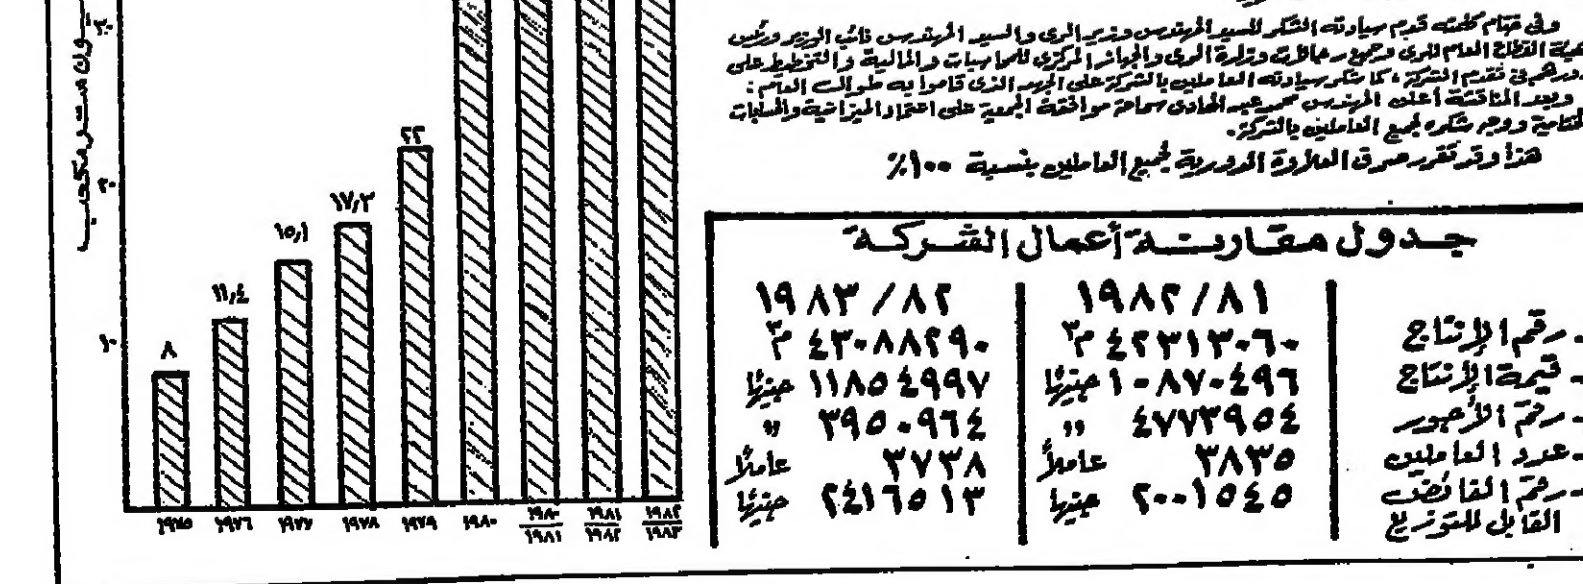 وفى ختام كلمته قدم سيادته الشكر للسيد المهندس وزير الرى والسيد المهندس نائب الوزير ورئيس
هيئة القطاع العام للرى وجميع رجالات وزارة الرى والجهاز المركزى للمحاسبات والمالية والتخطيط على
دورهم فى تقدم الشركة، كما شكر سيادته العاملين بالشركة على الجهد الذى قاموا به طوال العام:
وبعد المناقشة أعلن المهندس محمد عبد الهادى سماحة موافقة الجمعية على اعتماد الميزانية والحسابات
الختامية ووجه شكره لجميع العاملين بالشركة.
هذا وقد تقرر صرف العلاوة الدورية لجميع العاملين بنسبة ١٠٠٪
جدول مقارنة أعمال الشركة
١٩٨٢/٨١ ١٩٨٣/٨٢
- رقم الإنتاج ٤٢٣١٣٠٦٠ م٣ ٤٣٠٨٨٢٩٠ م٣
- قيمة الإنتاج ١٠٨٧٠٤٩٦ جنيها ١١٨٥٤٩٩٧ جنيها
- رقم الأجور ٤٧٧٣٩٥٤ " ٣٩٥٠٩٦٤ "
- عدد العاملين ٣٨٣٥ عاملاً ٣٧٣٨ عاملاً
- رقم الفائض ٢٠٠١٥٤٥ جنيها ٢٤١٦٥١٣ جنيها
القابل للتوزيع
متر مكعب
٣٠
٢٠
١٠
٨
١١,٤
١٥,١
١٧,٣
٢٢
١٩٧٥ ١٩٧٦ ١٩٧٧ ١٩٧٨ ١٩٧٩ ١٩٨٠ ١٩٨٠/١٩٨١ ١٩٨١/١٩٨٢ ١٩٨٢/١٩٨٣